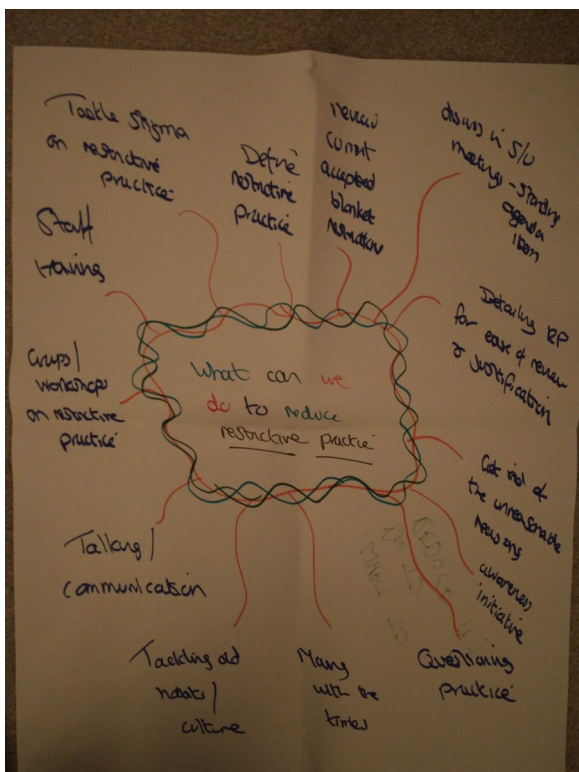 What can we
do to reduce
restrictive practice
Tackle stigma
on restrictive
practice
Define
restrictive
practice
review
current
accepted
blanket
restriction
discuss in S/U
meetings - standing
agenda
item
Detailing RP
for ease of review
& justification
Get rid of
the unreasonable
reasons
awareness
initiative
Questioning
practice
Moving
with the
times
Tackling old
habits/
culture
Talking/
communication
Groups/
workshops
on restrictive
practice
Staff
training